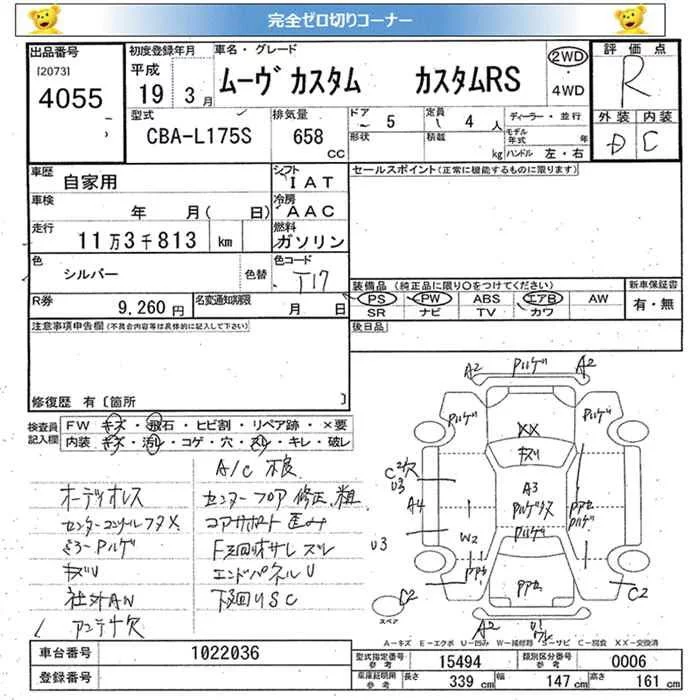 完全ゼロ切りコーナー
出品番号
[2073]
4055
初度登録年月
平成
19 3月
車名・グレード
ムーヴカスタム カスタムRS
2WD
・
4WD
評価点
R
外装 内装
D C
型式
CBA-L175S
排気量
658
CC
ドア
5
形状
定員
4人
積載
kg
ディーラー・並行
モデル年式 年
ハンドル 左・右
車歴
自家用
シフト
IAT
車検
年 月( 日)
冷房
AAC
走行
11万3千813 km
燃料
ガソリン
色
シルバー
色替
色コード
T17
R券
9,260円
名変通知期限
月 日
セールスポイント(正常に機能するものに限ります)
装備品(純正品に限り○をつけてください)
PS PW ABS エアB AW
SR ナビ TV カワ
新車保証書
有・無
後日品
注意事項申告欄(不具合内容等は具体的に記入して下さい)
修復歴 有〔箇所 〕
検査員記入欄
FW キズ・飛石・ヒビ割・リペア跡・×要
内装 キズ・汚レ・コゲ・穴・スレ・キレ・破レ
A/C不良
オーディオレス
センターフロア修正、粗
センターコンソールフタメ
コアサポート歪み
ミラーPハゲ
F下回リオサレズレ
キズU
エンドパネルU
社外AW
下回りSC
アンテナ欠
A2 Pハゲ A2
Pハゲ Pハゲ
XX
キズリ
C2欠
U3
A4
A3
Pハゲ
U3
W2
Pハゲ
C2
C2
A2
スペア
A-キズ E-エクボ U-凹み W-補修跡 S-サビ C-腐食 XX-交換済
車台番号
1022036
登録番号
型式指定番号
参考
15494
類別区分番号
参考
0006
車庫証明用
参考
長さ 339cm 幅 147cm 高さ 161cm